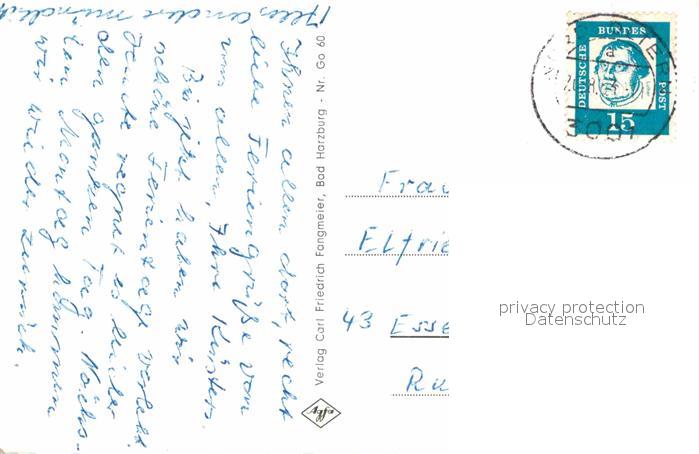 Ihnen allen dort, recht
liebe Feriengrüße von
uns allen, Ihre Küsters.
Birgitt haben wir
schöne Ferientage verlebt
Heute regnet es leider
den ganzen Tag. Nächs-
ten Montag kommen
wir wieder zurück.
Alles andere mündlich
Verlag Carl Friedrich Fangmeier, Bad Harzburg - Nr. Go 60
Agfa
DEUTSCHE
BUNDES
POST
15
3001
Frau
Elfrie
43 Esse
Ru
privacy protection
Datenschutz